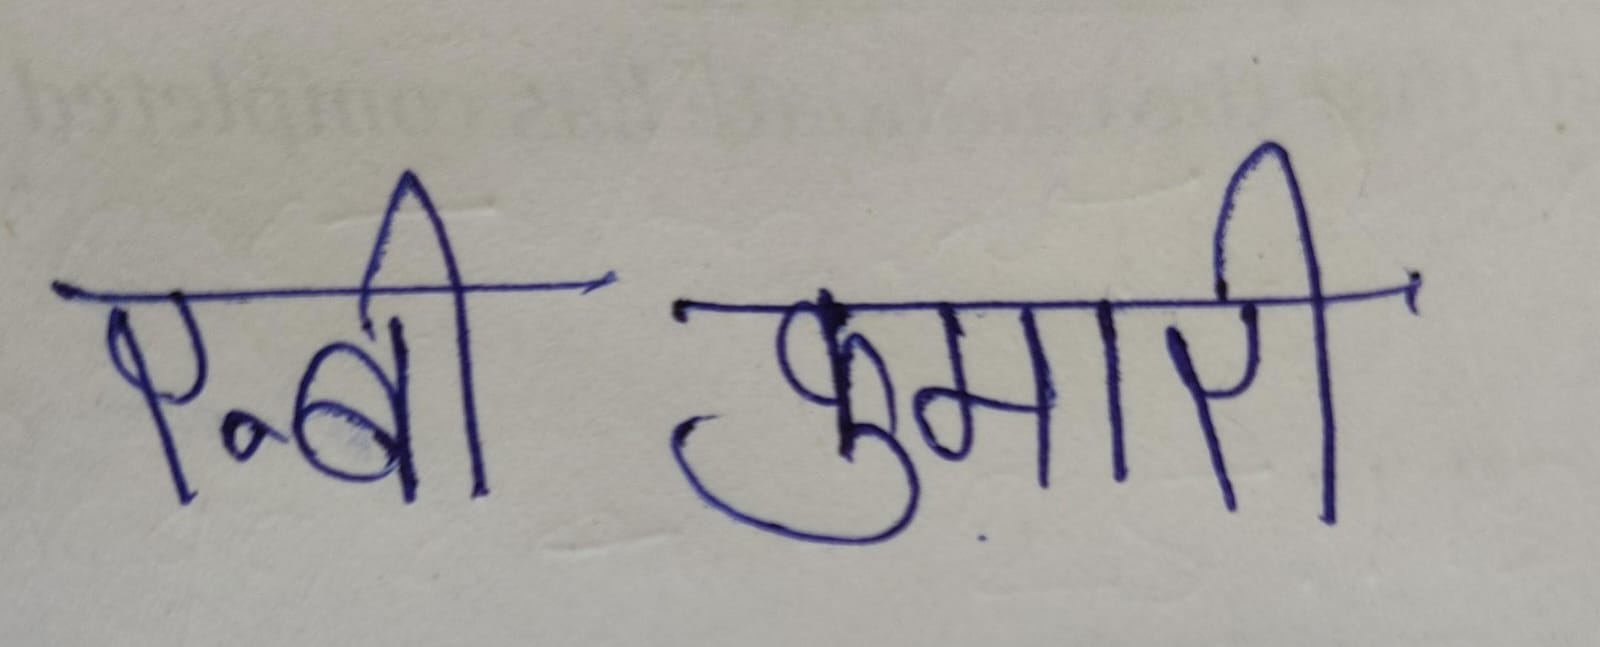 रूबी कुमारी